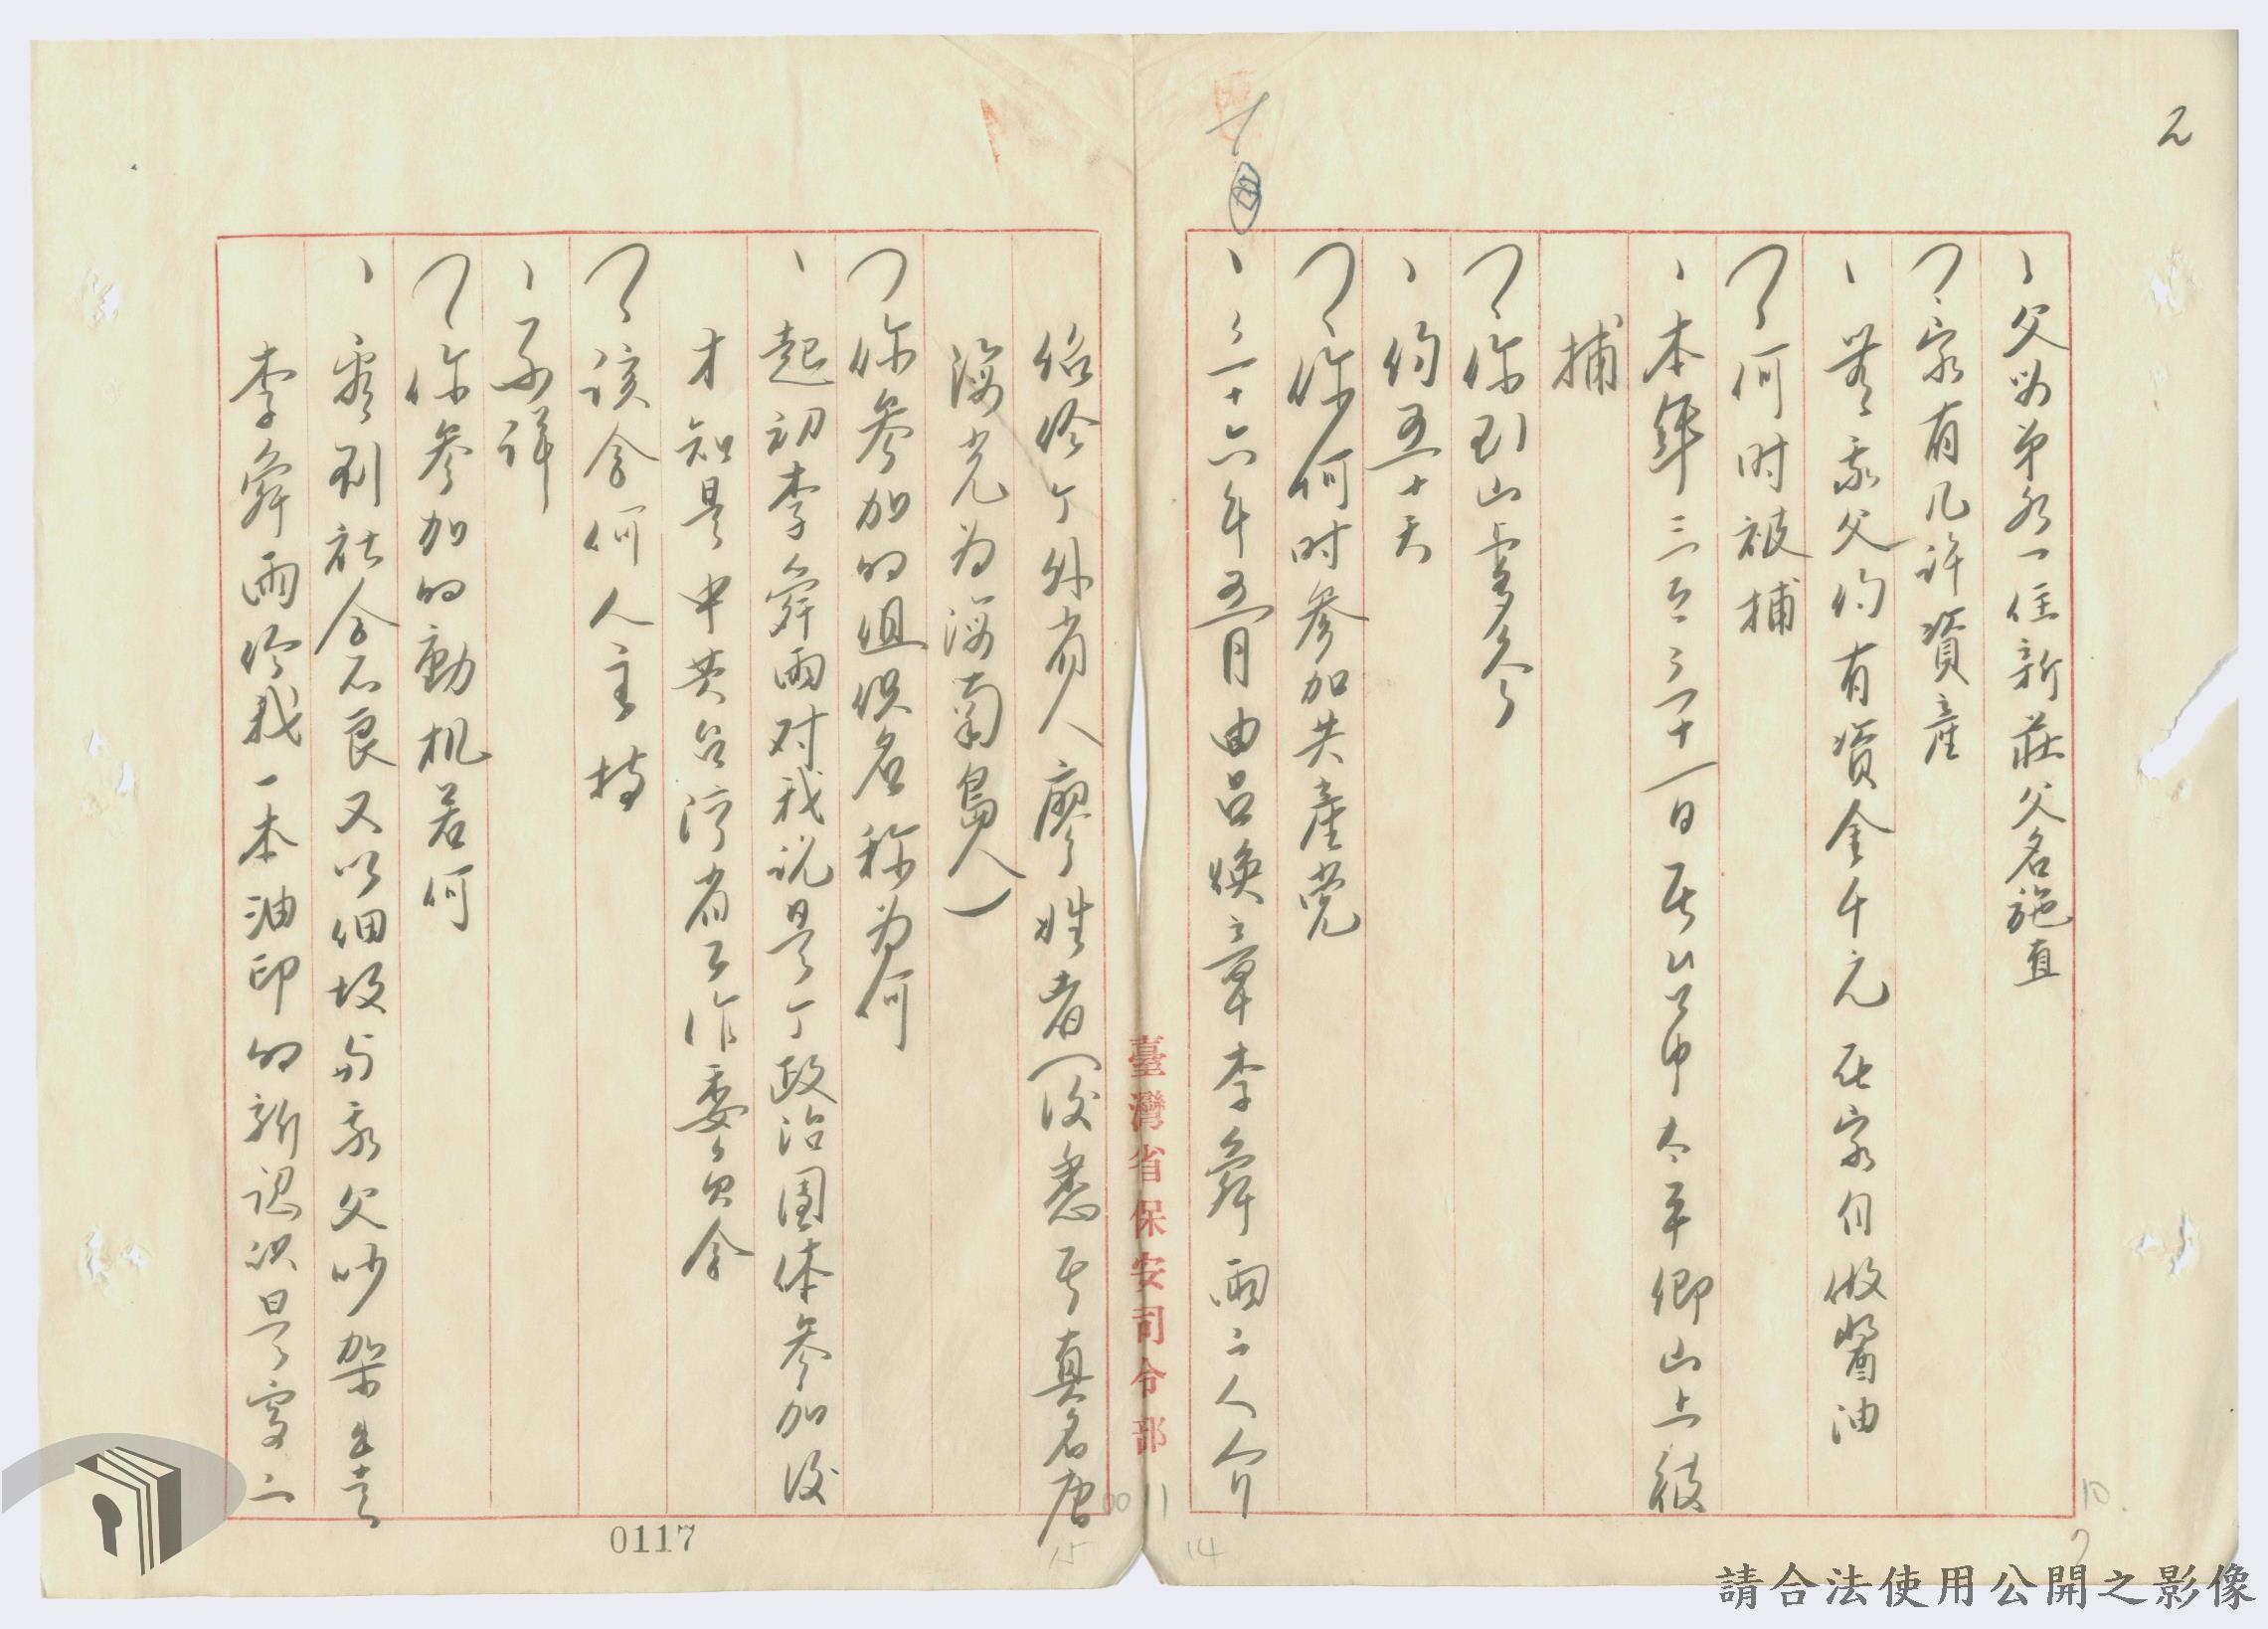 2
、父母弟各一住新莊父名施直
了、家有几許資產
、營業父約有資金千元在家自做醬油
了、何时被捕
、本年三月三十一日在台中太平鄉山上被
捕
了、你到山上多久
、約五十天
了、你何时參加共產党
、三十六年五月由呂煥章李舜雨二人介
紹給丁外省人廖姓者（後悉其真名唐
海光为海南島人）
了、你參加的组织名称为何
、起初李舜雨对我説是丁政治團体參加後
才知是中共台湾省工作委員会
了、該会何人主持
、不詳
了、你參加的動机若何
、看到社会不良又以細故与家父吵架出走
李舜雨給我一本油印的新認识是寫二
臺灣省保安司令部
0117
14
15
10
請合法使用公開之影像